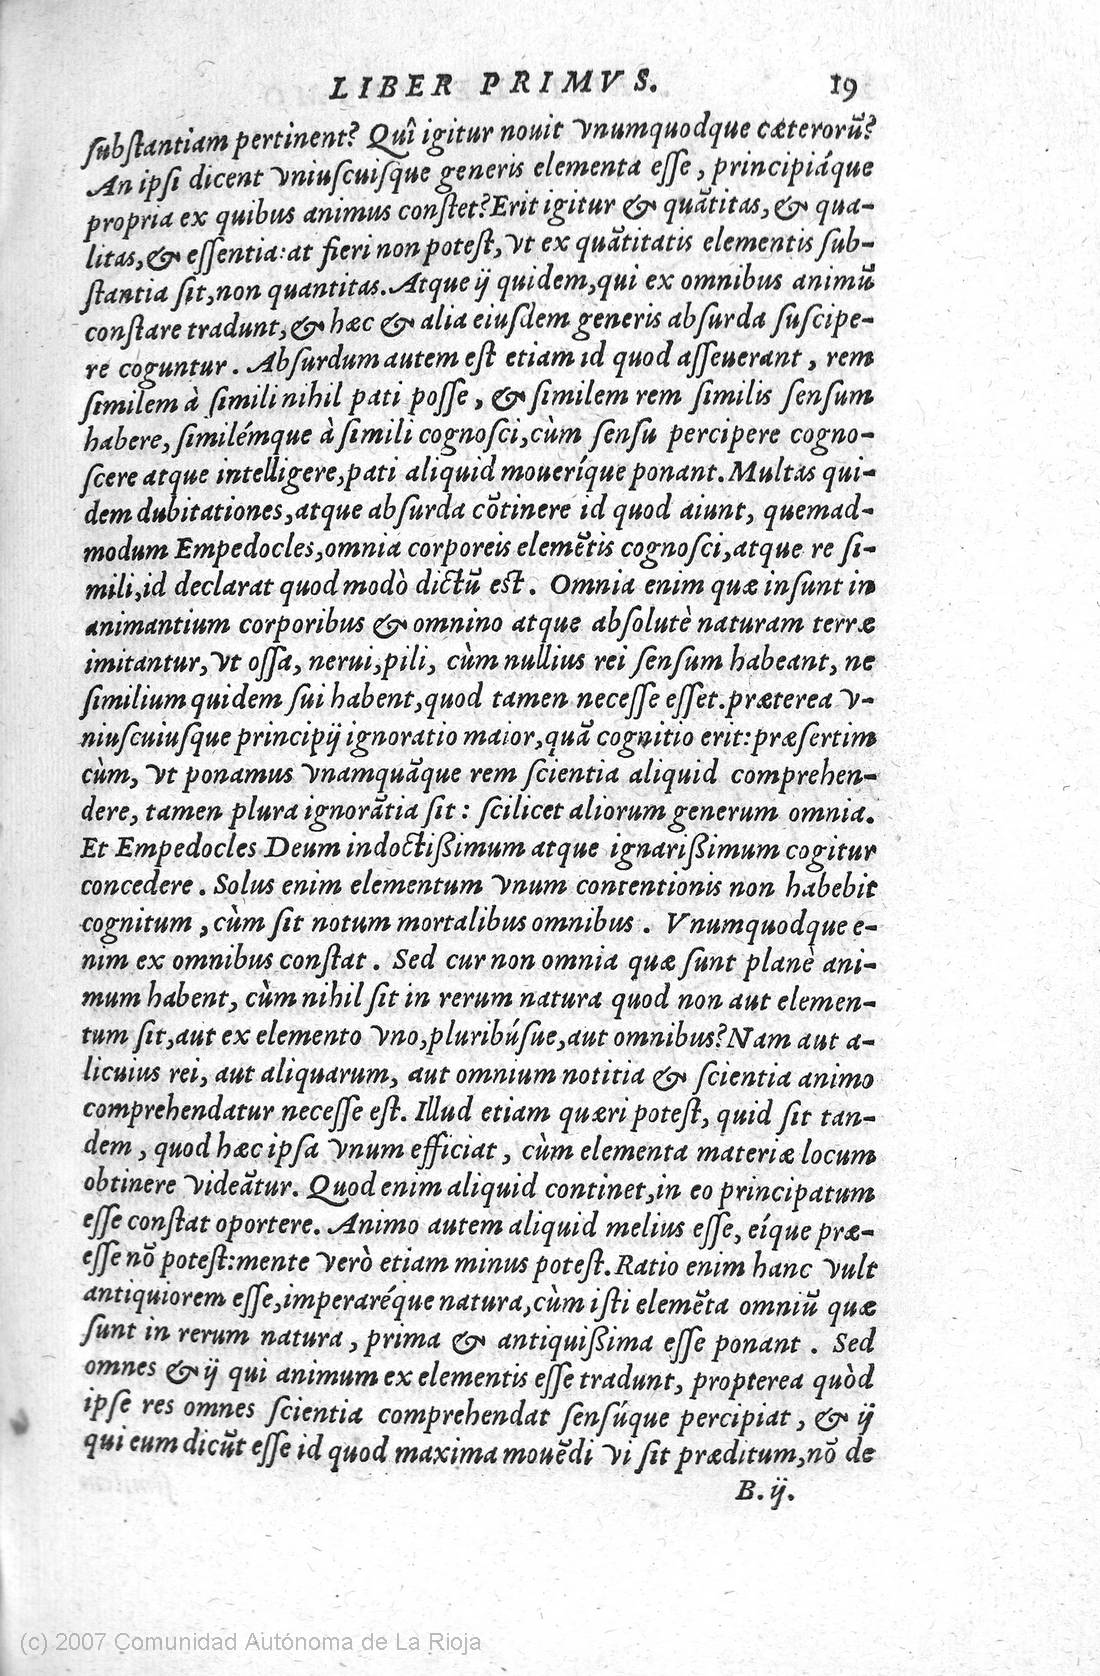 LIBER PRIMVS. 19
substantiam pertinent? Quî igitur nouit vnumquodque cæterorũ?
An ipsi dicent vniuscuiusque generis elementa esse, principiáque
propria ex quibus animus constet? Erit igitur & quãtitas, & qua-
litas, & essentia: at fieri non potest, vt ex quãtitatis elementis sub-
stantia sit, non quantitas. Atque ij quidem, qui ex omnibus animũ
constare tradunt, & hæc & alia eiusdem generis absurda suscipe-
re coguntur. Absurdum autem est etiam id quod asseuerant, rem
similem à simili nihil pati posse, & similem rem similis sensum
habere, similémque à simili cognosci, cùm sensu percipere cogno-
scere atque intelligere, pati aliquid moueríque ponant. Multas qui-
dem dubitationes, atque absurda cõtinere id quod aiunt, quemad-
modum Empedocles, omnia corporeis elemẽtis cognosci, atque re si-
mili, id declarat quod modò dictũ est. Omnia enim quæ insunt in
animantium corporibus & omnino atque absolutè naturam terræ
imitantur, vt ossa, nerui, pili, cùm nullius rei sensum habeant, ne
similium quidem sui habent, quod tamen necesse esset. præterea v-
niuscuiusque principij ignoratio maior, quã cognitio erit: præsertim
cùm, vt ponamus vnamquãque rem scientia aliquid comprehen-
dere, tamen plura ignorãtia sit: scilicet aliorum generum omnia.
Et Empedocles Deum indoctißimum atque ignarißimum cogitur
concedere. Solus enim elementum vnum contentionis non habebit
cognitum, cùm sit notum mortalibus omnibus. Vnumquodque e-
nim ex omnibus constat. Sed cur non omnia quæ sunt planè ani-
mum habent, cùm nihil sit in rerum natura quod non aut elemen-
tum sit, aut ex elemento vno, pluribúsue, aut omnibus? Nam aut a-
licuius rei, aut aliquarum, aut omnium notitia & scientia animo
comprehendatur necesse est. Illud etiam quæri potest, quid sit tan-
dem, quod hæc ipsa vnum efficiat, cùm elementa materiæ locum
obtinere videãtur. Quod enim aliquid continet, in eo principatum
esse constat oportere. Animo autem aliquid melius esse, eíque præ-
esse nõ potest: mente verò etiam minus potest. Ratio enim hanc vult
antiquiorem esse, imperaréque natura, cùm isti elemẽta omniũ quæ
sunt in rerum natura, prima & antiquißima esse ponant. Sed
omnes & ij qui animum ex elementis esse tradunt, propterea quòd
ipse res omnes scientia comprehendat sensúque percipiat, & ij
qui eum dicũt esse id quod maxima mouẽdi vi sit præditum, nõ de
B. ij.
(c) 2007 Comunidad Autónoma de La Rioja